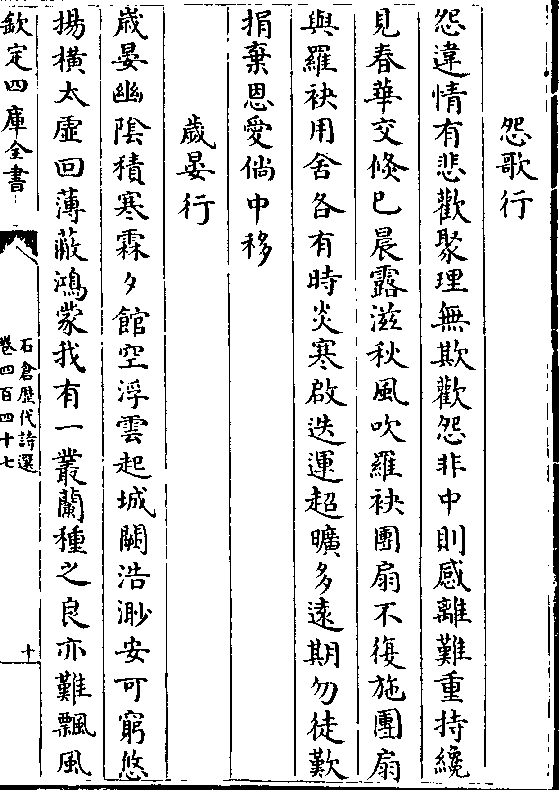 怨歌行
怨違情有悲歡聚理無欺歡怨非中則感離難重持纔
見春華交倏已晨露滋秋風吹羅袂團扇不復施團扇
與羅袂用舍各有時炎寒啟迭運超曠多遠期勿徒歎
捐棄恩愛倘中移
歲晏行
歲晏幽陰積寒霖夕館空浮雲起城闕浩渺安可窮悠
揚橫太虛回薄蔽鴻蒙我有一叢蘭種之良亦難飄風
欽定四庫全書
石倉歷代詩選
卷四百四十七
十